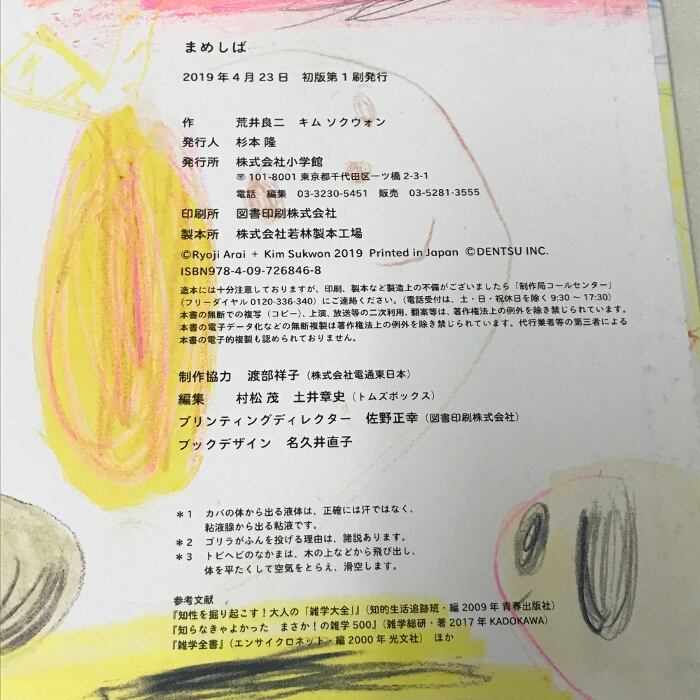 まめしば
2019年4月23日　初版第1刷発行
作　荒井良二　キム ソクウォン
発行人　杉本 隆
発行所　株式会社小学館
〒101-8001 東京都千代田区一ツ橋 2-3-1
電話　編集　03-3230-5451　販売　03-5281-3555
印刷所　図書印刷株式会社
製本所　株式会社若林製本工場
©Ryoji Arai + Kim Sukwon 2019 Printed in Japan ©DENTSU INC.
ISBN978-4-09-726846-8
造本には十分注意しておりますが、印刷、製本など製造上の不備がございましたら「制作局コールセンター」
（フリーダイヤル 0120-336-340）にご連絡ください。（電話受付は、土・日・祝休日を除く 9:30 ～ 17:30）
本書の無断での複写（コピー）、上演、放送等の二次利用、翻案等は、著作権法上の例外を除き禁じられています。
本書の電子データ化などの無断複製は著作権法上の例外を除き禁じられています。代行業者等の第三者による
本書の電子的複製も認められておりません。
制作協力　渡部祥子（株式会社電通東日本）
編集　村松 茂　土井章史（トムズボックス）
プリンティングディレクター　佐野正幸（図書印刷株式会社）
ブックデザイン　名久井直子
＊1　カバの体から出る液体は、正確には汗ではなく、
粘液腺から出る粘液です。
＊2　ゴリラがふんを投げる理由は、諸説あります。
＊3　トビヘビのなかまは、木の上などから飛び出し、
体を平たくして空気をとらえ、滑空します。
参考文献
『知性を掘り起こす！大人の「雑学大全」』（知的生活追跡班・編 2009年 青春出版社）
『知らなきゃよかった　まさか！の雑学500』（雑学総研・著 2017年 KADOKAWA）
『雑学全書』（エンサイクロネット・編 2000年 光文社）　ほか